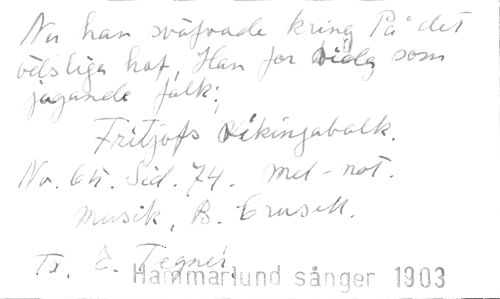 Nu han sväfvade kring På det
ödsliga haf, Han for vida som
jagande falk;
Fritjofs Vikingabalk.
No. 65. Sid. 74. mel-not.
Musik, B. Crusell.
Tx. E. Tegnér.
Hammarlund sånger 1903